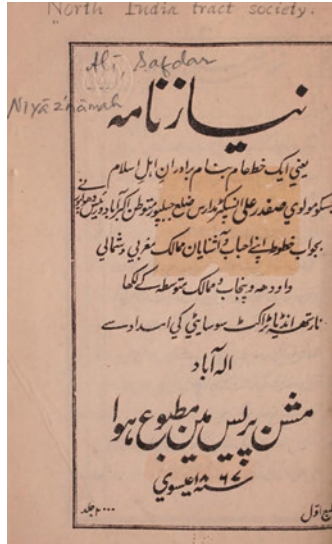 North India tract society.
Ali Safdar
Niyāz'nāmah
نیازنامہ
یعنی ایک خط عام بنام برادران اہل اسلام
جسکو مولوي صفدر علی انسپکٹر مدارس ضلع جبلپور متوطن اکبرآباد و رئیس دھولپور نے
بجواب خطوط اپنے احباب و آشنایان ممالک مغربي و شمالي
و اودھ و پنجاب و ممالک متوسطہ کے لکھا
نارتھ انڈیا ٹراکٹ سوسایٹي کي امداد سے
الہ آباد
مشن پریس مین مطبوع ہوا
سنہ ۱۸۶۷ عیسوي
طبع اوّل
جلد